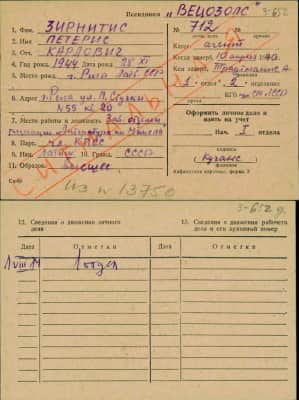 Псевдоним "ВЕЦОЗОЛС" 3-652
1. Фам. ЗИРНИТИС № 712
2. Имя ПЕТЕРИС
3. Отч. КАРЛОВИЧ Кат. агент
4. Год рожд. 1944 28 XI Когда завер.
5. Место рожд. г Рига Латв. ССР Кем завер.
6. Адрес Рига ул. П. Стучки "1" отдел "2" отделение
№55 кв. 20 КГБ при СМ ЛССР
7. Место работы и должность Зав. отделом
Оформить личное дело и
взять на учет
8. Парт. чл. КПСС Нач. I отдела
9. Нац. латыш 10. Гражд. СССР
11. Образов. высшее подпись
Алфавитная карточка, форма 3
Из № 13750
3-652 д.
12. Сведения о движении личного
дела
13. Сведения о движении рабочего
дела и его архивный номер
Дата Отметки Дата Отметки
1 отдел